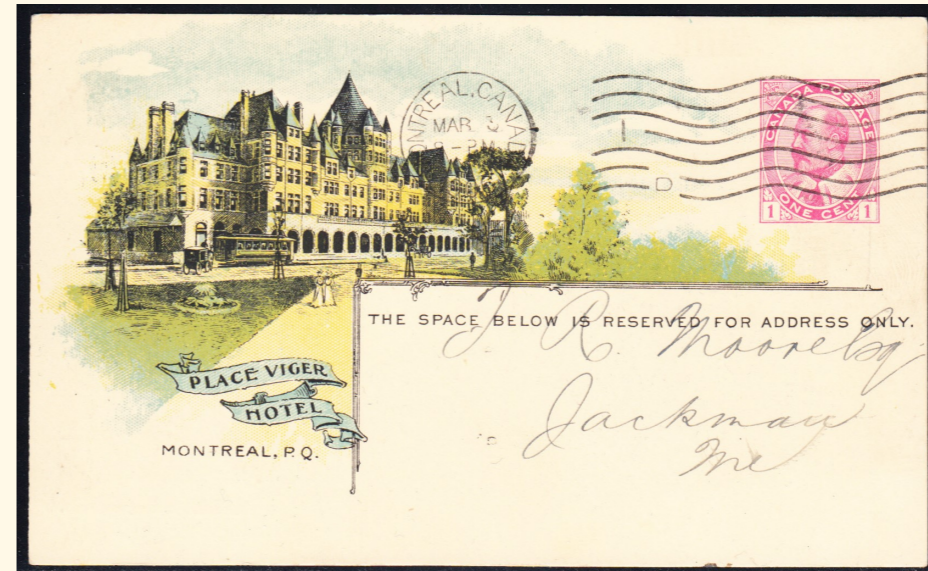 MONTREAL, CANADA
MAR 3
PM
D
CANADA POSTAGE
ONE CENT
1 1
THE SPACE BELOW IS RESERVED FOR ADDRESS ONLY.
J. R. Moore Esq
Jackman
Me
PLACE VIGER
HOTEL
MONTREAL, P.Q.